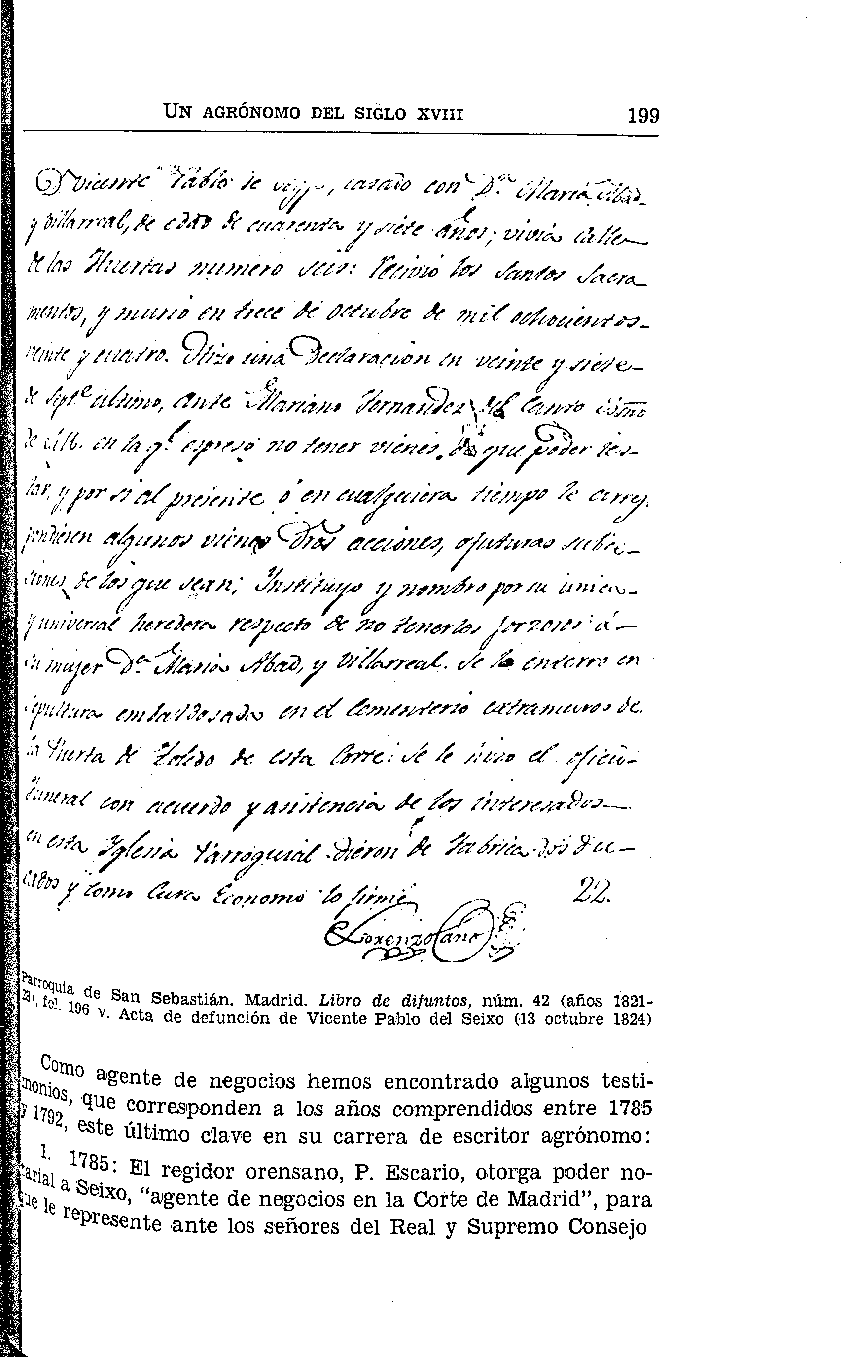 UN AGRÓNOMO DEL SIGLO XVIII 199
Dn Vicente Pablo de, casado con Dª. Maria Abad
y Villarreal, de edad de cuarenta y siete años; vivia calle
de las Huertas numero seis: Recivió los Santos Sacra
mentos, y murió en trece de octubre de mil ochocientos
veinte y cuatro. Hizo una Declaracion en veinte y siete
de Septe. ultimo, ante Mariano Fernandez del Canto
en la ql. espresó no tener vienes de que poder tes-
tar, y por si al presente ó en cualquiera tiempo le
algunos vienes Dros acciones, ó futuras
de los que sean; Instituyo y nombro por su unica
y universal heredera respecto de no tenerlos forzosos á
su mujer Dª. Maria Abad, y Villarreal. Se le enterro en
sepultura embaldosada en el Cementerio extramuros de
la Puerta de Toledo de esta Corte: Se le hizo el oficio
funeral con acuerdo y asistencia de los interesados
en esta Yglesia Parroquial dieron de Fabrica dos du-
cados y como Cura Economo lo firmé 22.
Lorenzo Cano
Parroquia de San Sebastián. Madrid. Libro de difuntos, núm. 42 (años 1821-
fol. 196 v. Acta de defunción de Vicente Pablo del Seixo (13 octubre 1824)
Como agente de negocios hemos encontrado algunos testi-
monios, que corresponden a los años comprendidos entre 1785
y 1792, este último clave en su carrera de escritor agrónomo:
1. 1785: El regidor orensano, P. Escario, otorga poder no-
tarial a Seixo, "agente de negocios en la Corte de Madrid", para
que le represente ante los señores del Real y Supremo Consejo